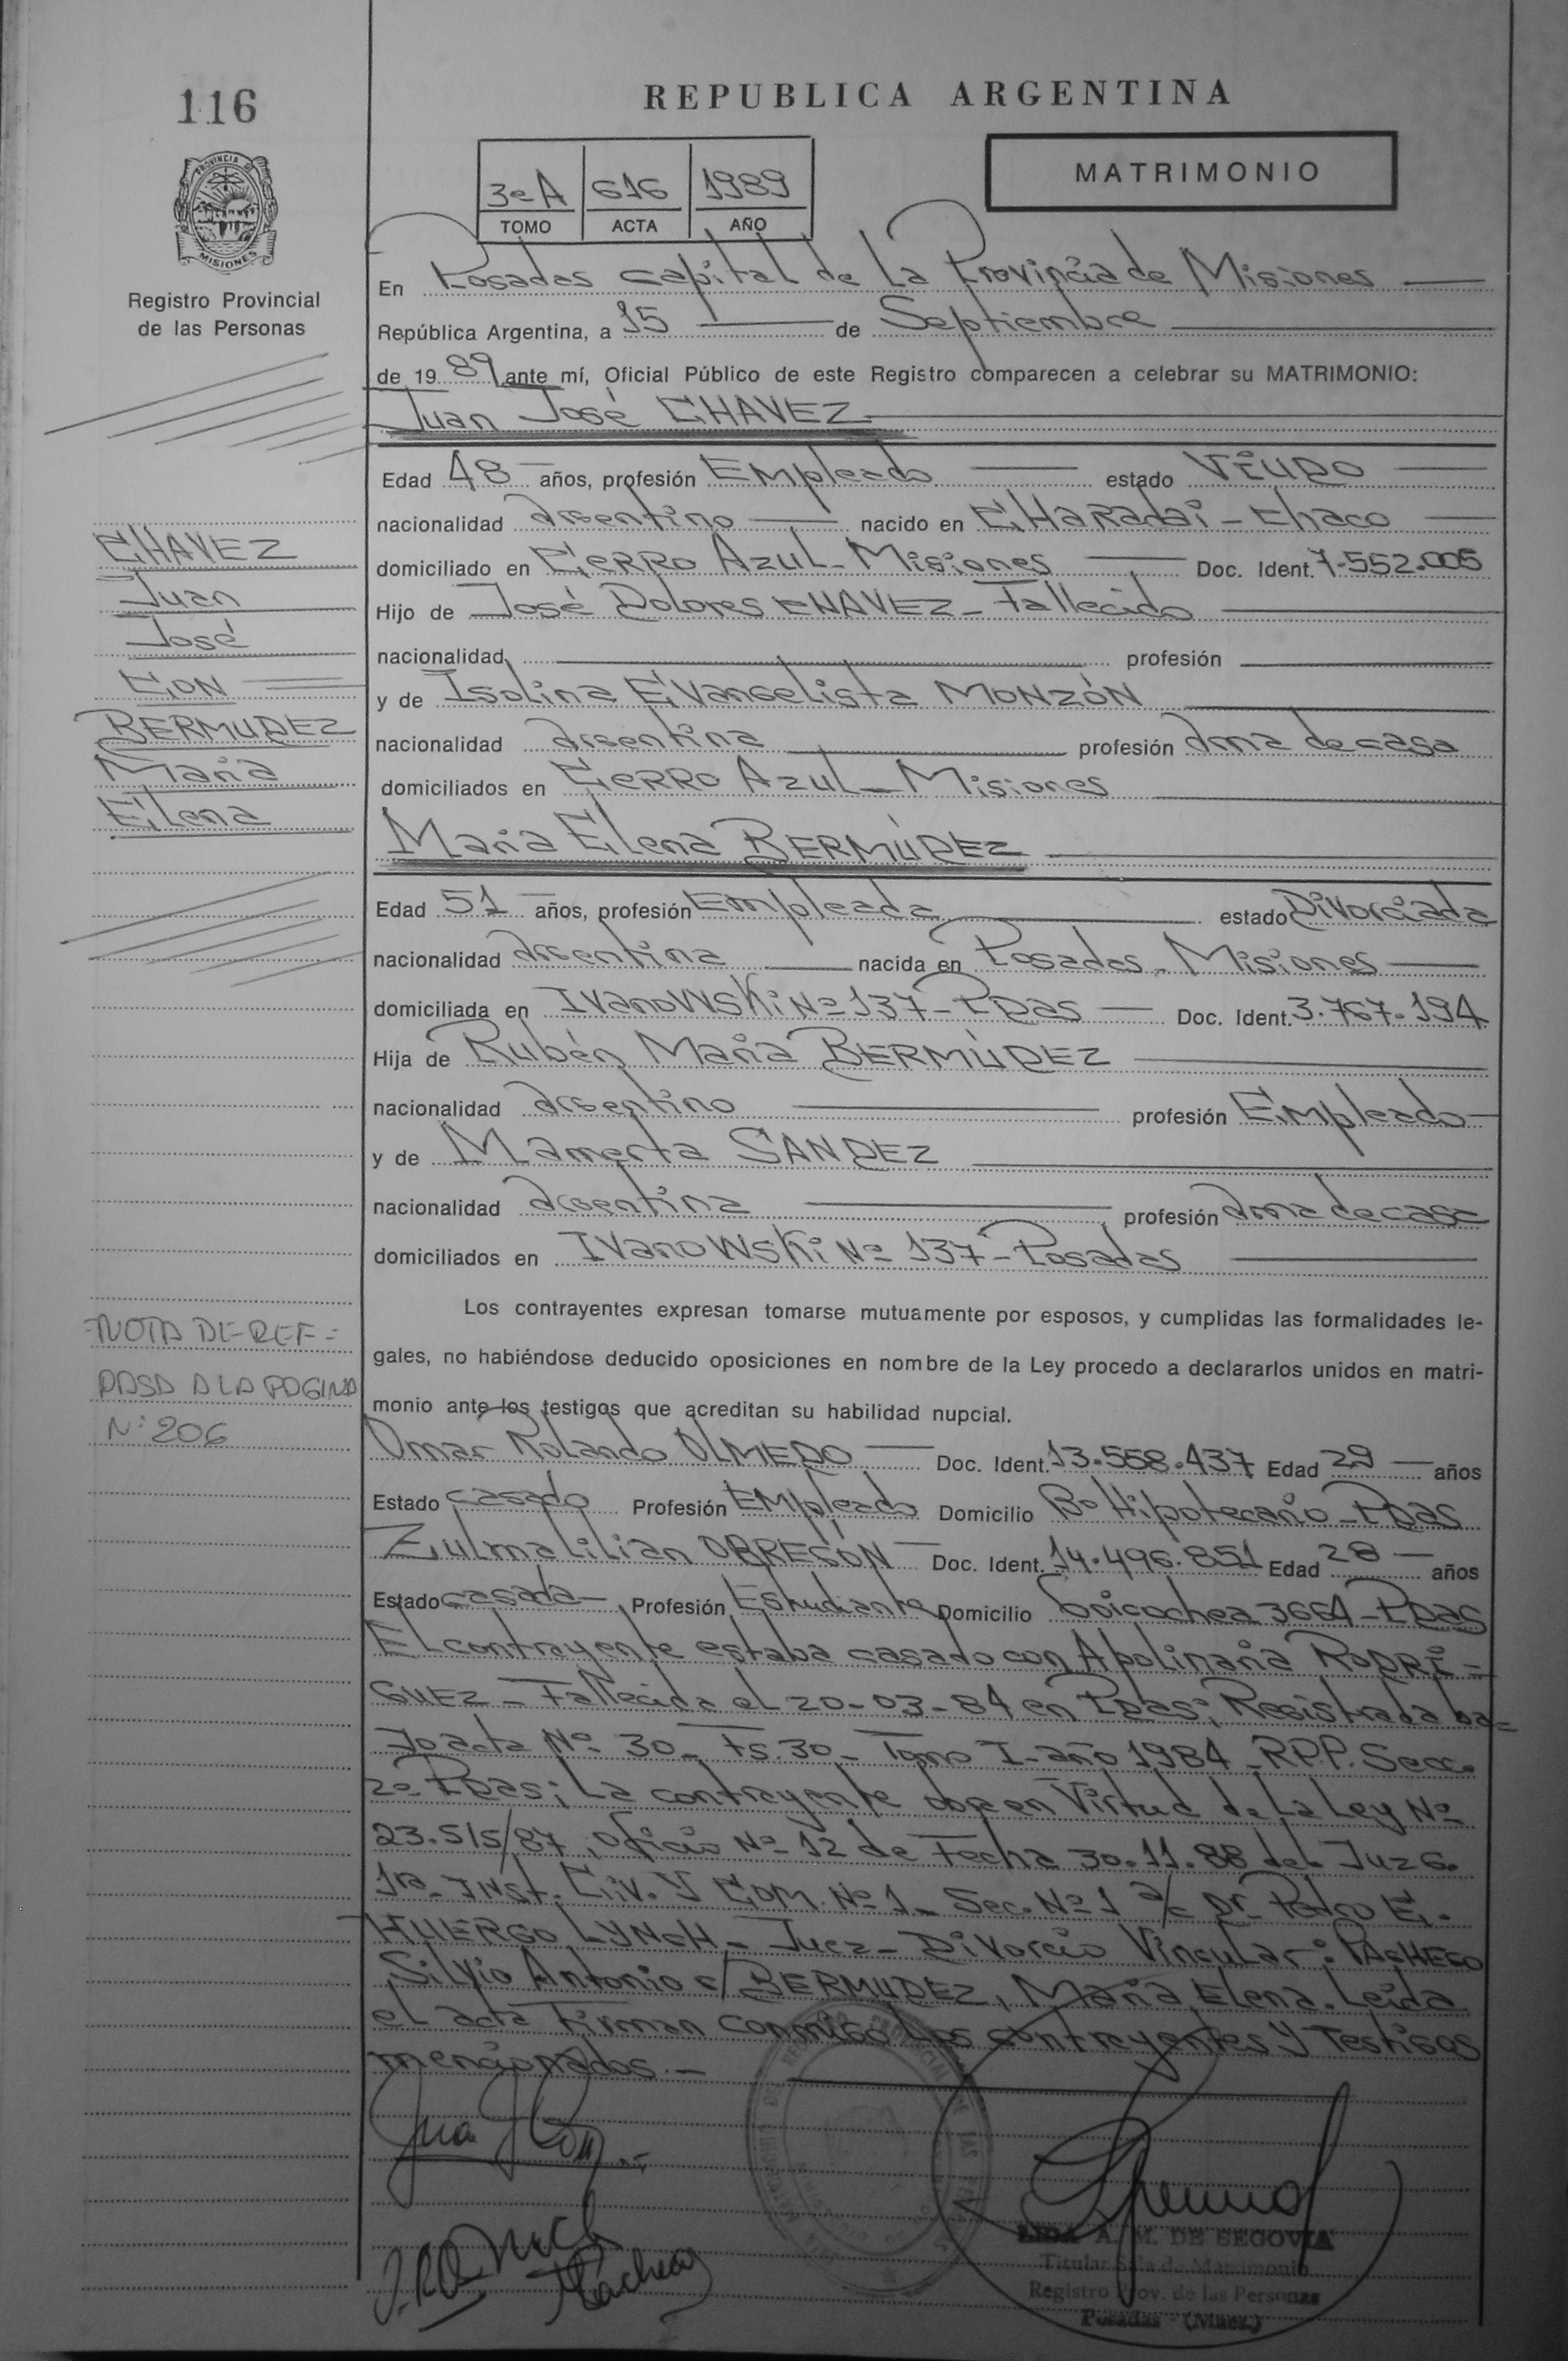 116
REPUBLICA ARGENTINA
MATRIMONIO
3ºA 616 1989
TOMO ACTA AÑO
PROVINCIA DE MISIONES
Registro Provincial
de las Personas
En Posadas capital de La Provincia de Misiones
República Argentina, a 15 de Septiembre
de 1989 ante mí, Oficial Público de este Registro comparecen a celebrar su MATRIMONIO:
Juan José CHAVEZ
Edad 48 años, profesión Empleado estado Viudo
nacionalidad argentino nacido en CHARadai - Chaco
domiciliado en CERRO AZUL - Misiones Doc. Ident. 7.552.005
Hijo de José Dolores CHAVEZ - Fallecido
nacionalidad profesión
y de Isolina Evangelista MONZÓN
nacionalidad argentina profesión ama de casa
domiciliados en CERRO AZUL - Misiones
CHAVEZ
Juan
José
CON
BERMUDEZ
Maria
Elena
Maria Elena BERMÚDEZ
Edad 51 años, profesión Empleada estado Divorciada
nacionalidad argentina nacida en Posadas - Misiones
domiciliada en IVanoWski Nº 137 - Pdas Doc. Ident. 3.767.194
Hija de Rubén Maria BERMÚDEZ
nacionalidad argentino profesión Empleado
y de Mamerta SANDEZ
nacionalidad argentina profesión ama de casa
domiciliados en IVanoWski Nº 137 - Posadas
Los contrayentes expresan tomarse mutuamente por esposos, y cumplidas las formalidades le-
gales, no habiéndose deducido oposiciones en nombre de la Ley procedo a declararlos unidos en matri-
monio ante los testigos que acreditan su habilidad nupcial.
=NOTA DE REF=
PASA A LA PAGINA
Nº 206
Omar Rolando OLMEDO Doc. Ident. 13.558.437 Edad 29 años
Estado casado Profesión Empleado Domicilio Bº Hipotecario - Pdas
Zulma Lilian OBREGÓN Doc. Ident. 14.496.851 Edad 28 años
Estado casada Profesión Estudiante Domicilio Goicochea 3664 - Pdas
El contrayente estaba casado con Apolinaria RODRI=
GUEZ - Fallecida el 20-03-84 en Pdas; Registrada ba=
Jo acta Nº 30 - Fs. 30 - Tomo I - año 1984 - R.P.P. Secc.
2º Pdas; La contrayente en Virtud de La Ley Nº
23.515/87, oficio Nº 12 de Fecha 30.11.88 del Juzg.
1ra. Inst. Civ. y COM. Nº 1 - Sec. Nº 1 a/c Dr. Pedro E.
HUERGO LYNCH - Juez - Divorcio Vincular: PACHECO
Silvio Antonio c/ BERMUDEZ, Maria Elena. Leída
el acta Firman conmigo Los contrayentes y Testigos
mencionados.-
LIDA A. M. DE SEGOVIA
Titular Sala de Matrimonio
Registro Prov. de las Personas
Posadas - (Mnes.)